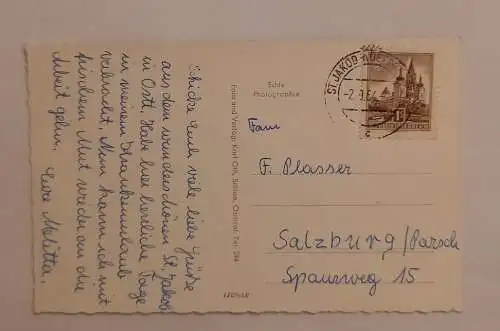 Schicke Euch viele liebe Grüße
aus dem wunderschönen St. Jakob
in Ostt. Habe hier herrliche Tage
in meinem Krankenurlaub
verbracht. Nun kann ich mit
frischem Mut wieder an die
Arbeit gehn. Eure Melitta.
Echte
Photographie
Foto und Verlag: Karl Ottl, Sillian, Osttirol: Tel. 294
ST. JAKOB
-2.9.64
c
Fam
F. Plasser
Salzburg/Parsch
Spaurweg 15